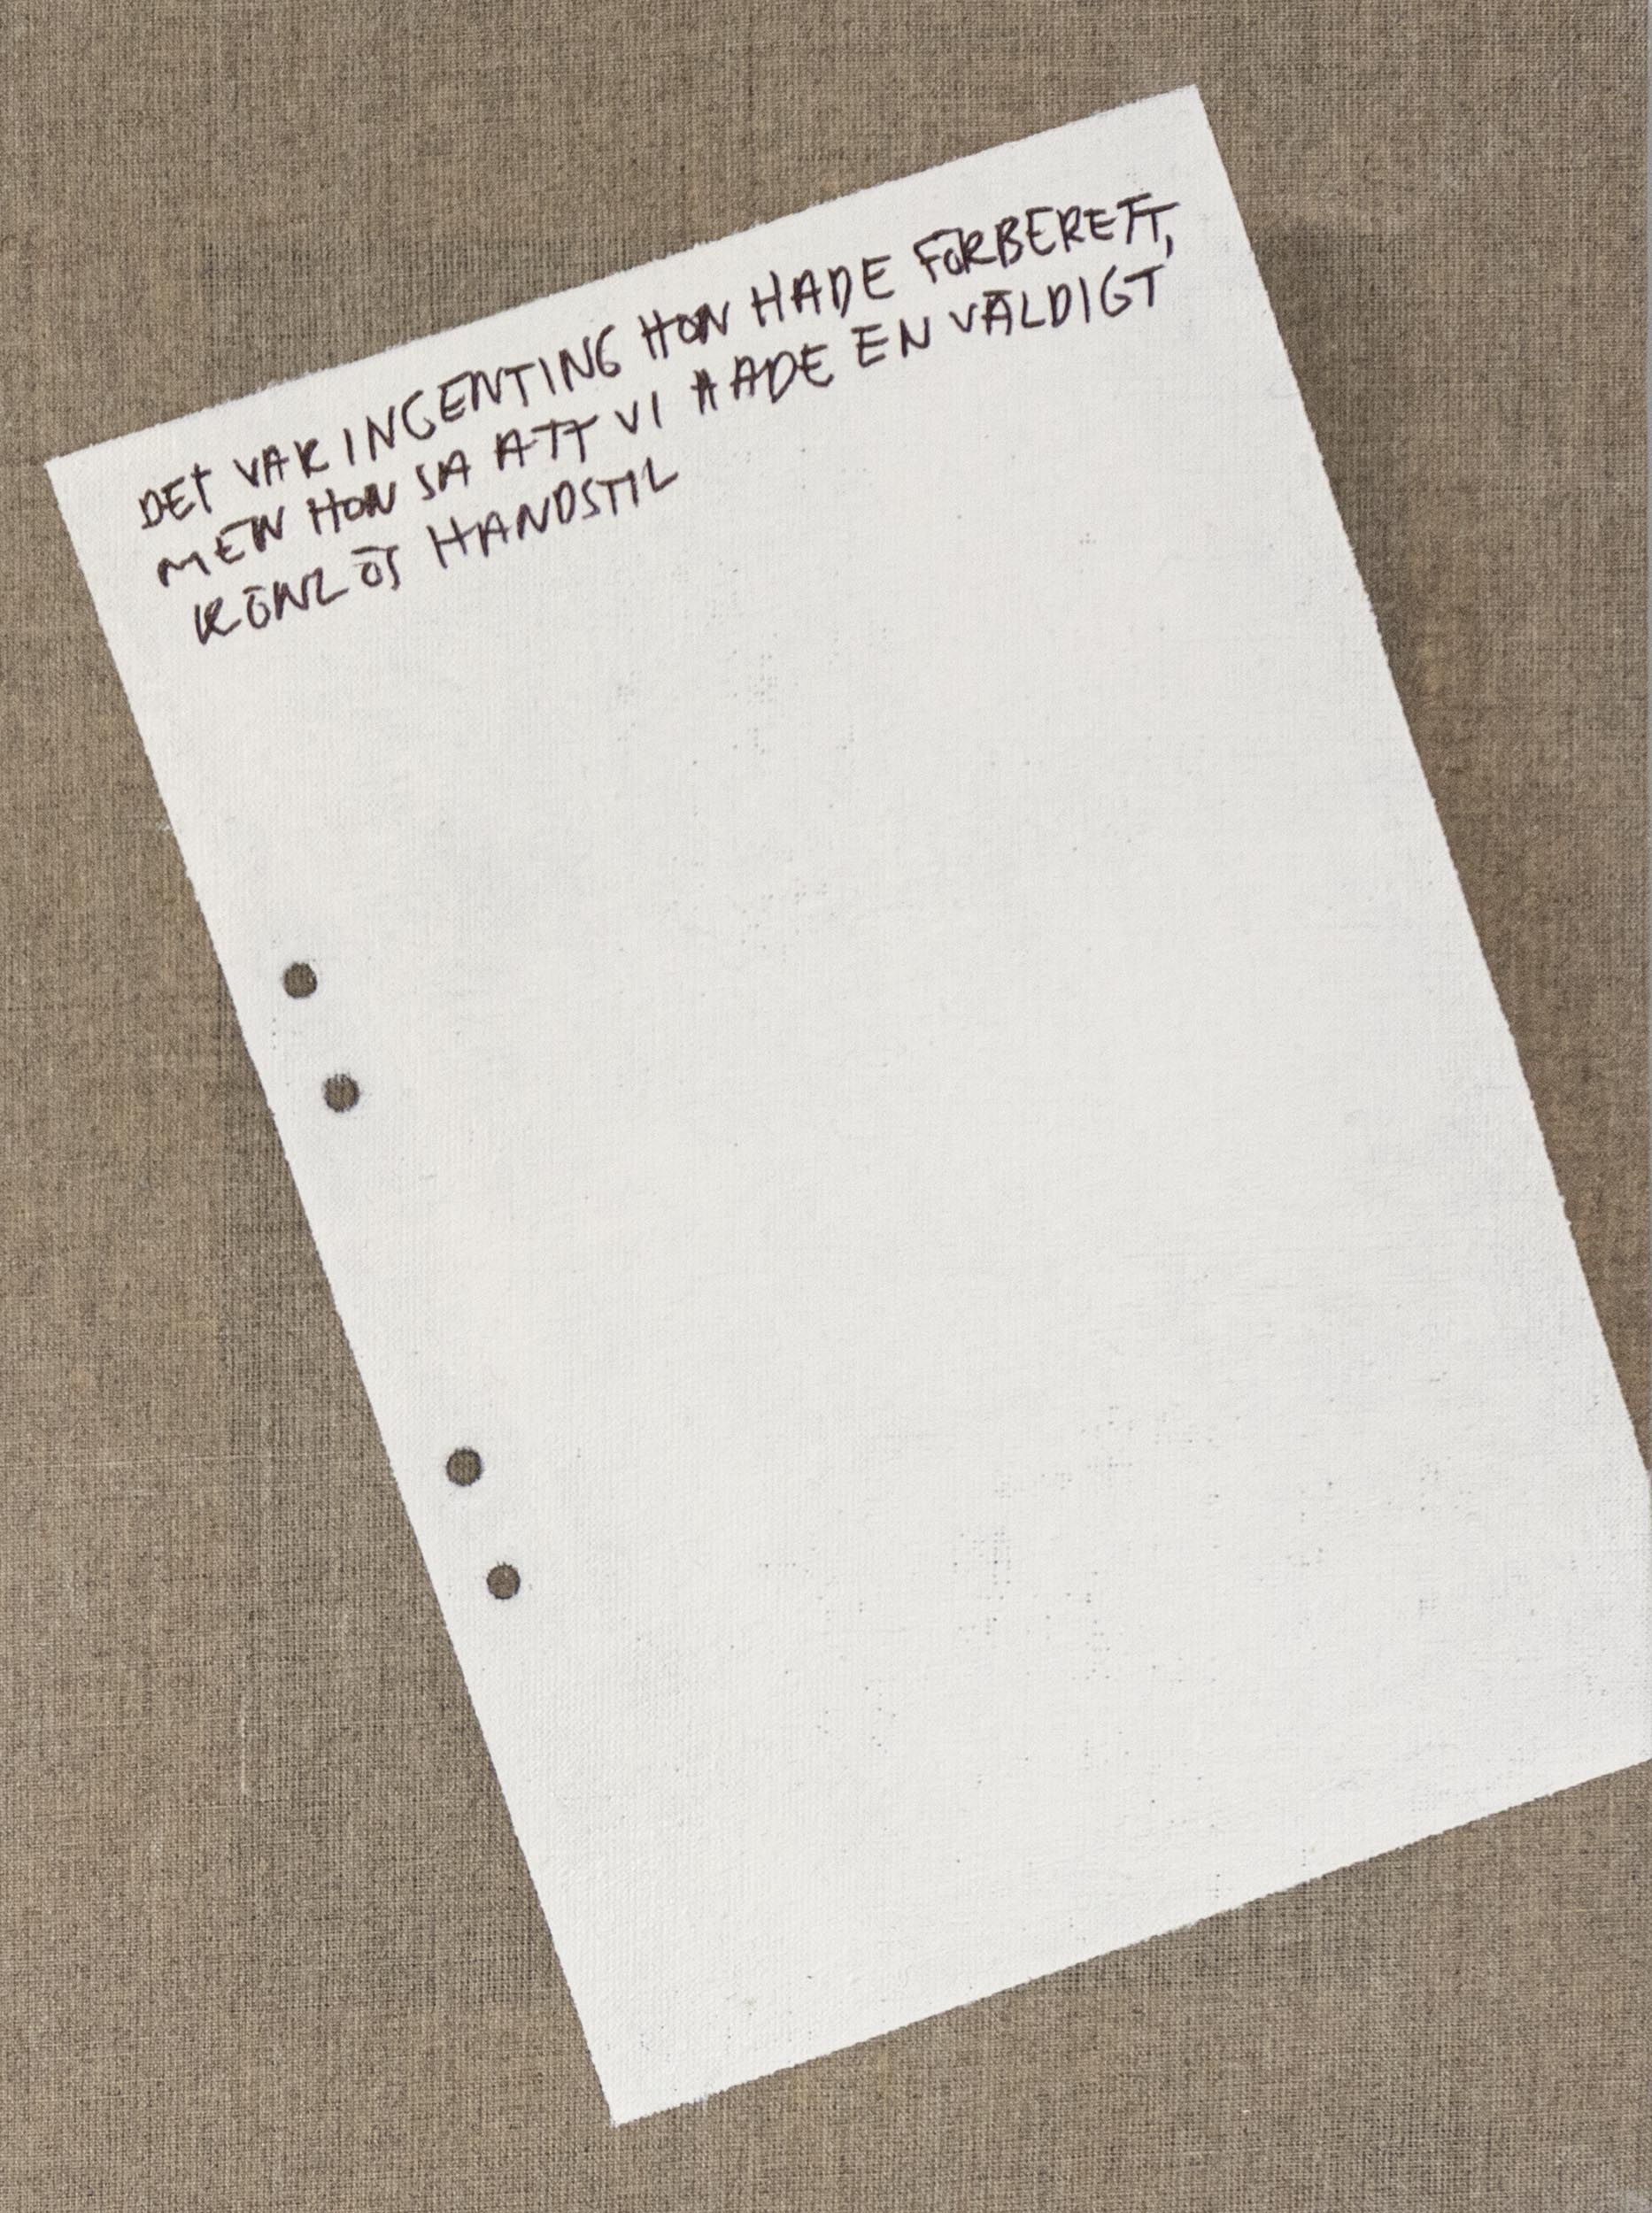 DET VAR INGENTING HON HADE FÖRBERETT,
MEN HON SA ATT VI HADE EN VÄLDIGT
KÖNLÖS HANDSTIL